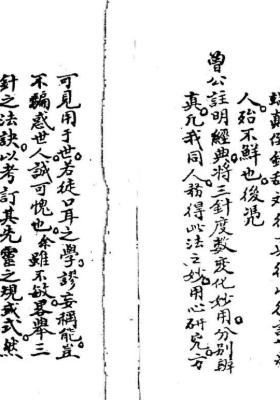 人殆不鮮也後憑
曾公註明經典將三針度數變化妙用分別辨
真凡我同人務得此法之妙用心研究方
可見用于世若徒口耳之學謬妄稱能豈
不騙惑世人誠可愧也余雖不敏畧舉三
針之法訣以考訂其先靈之規或式然